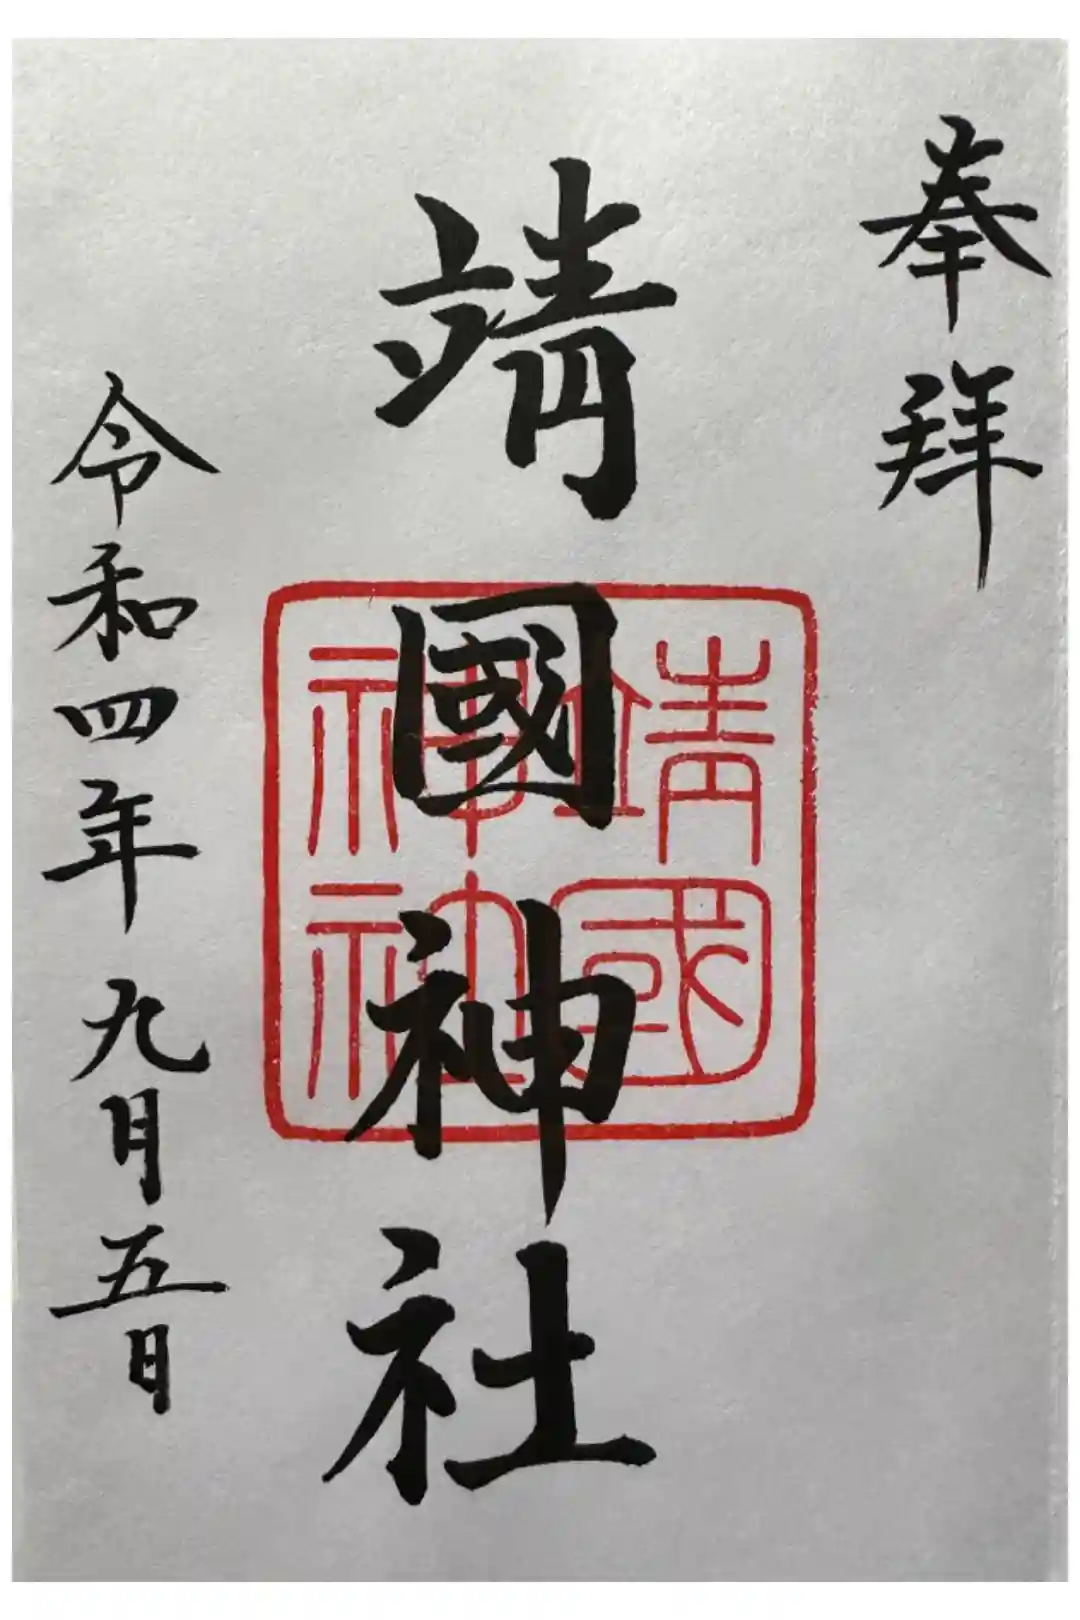 奉拜
靖國神社
靖國
神社
令和四年九月五日